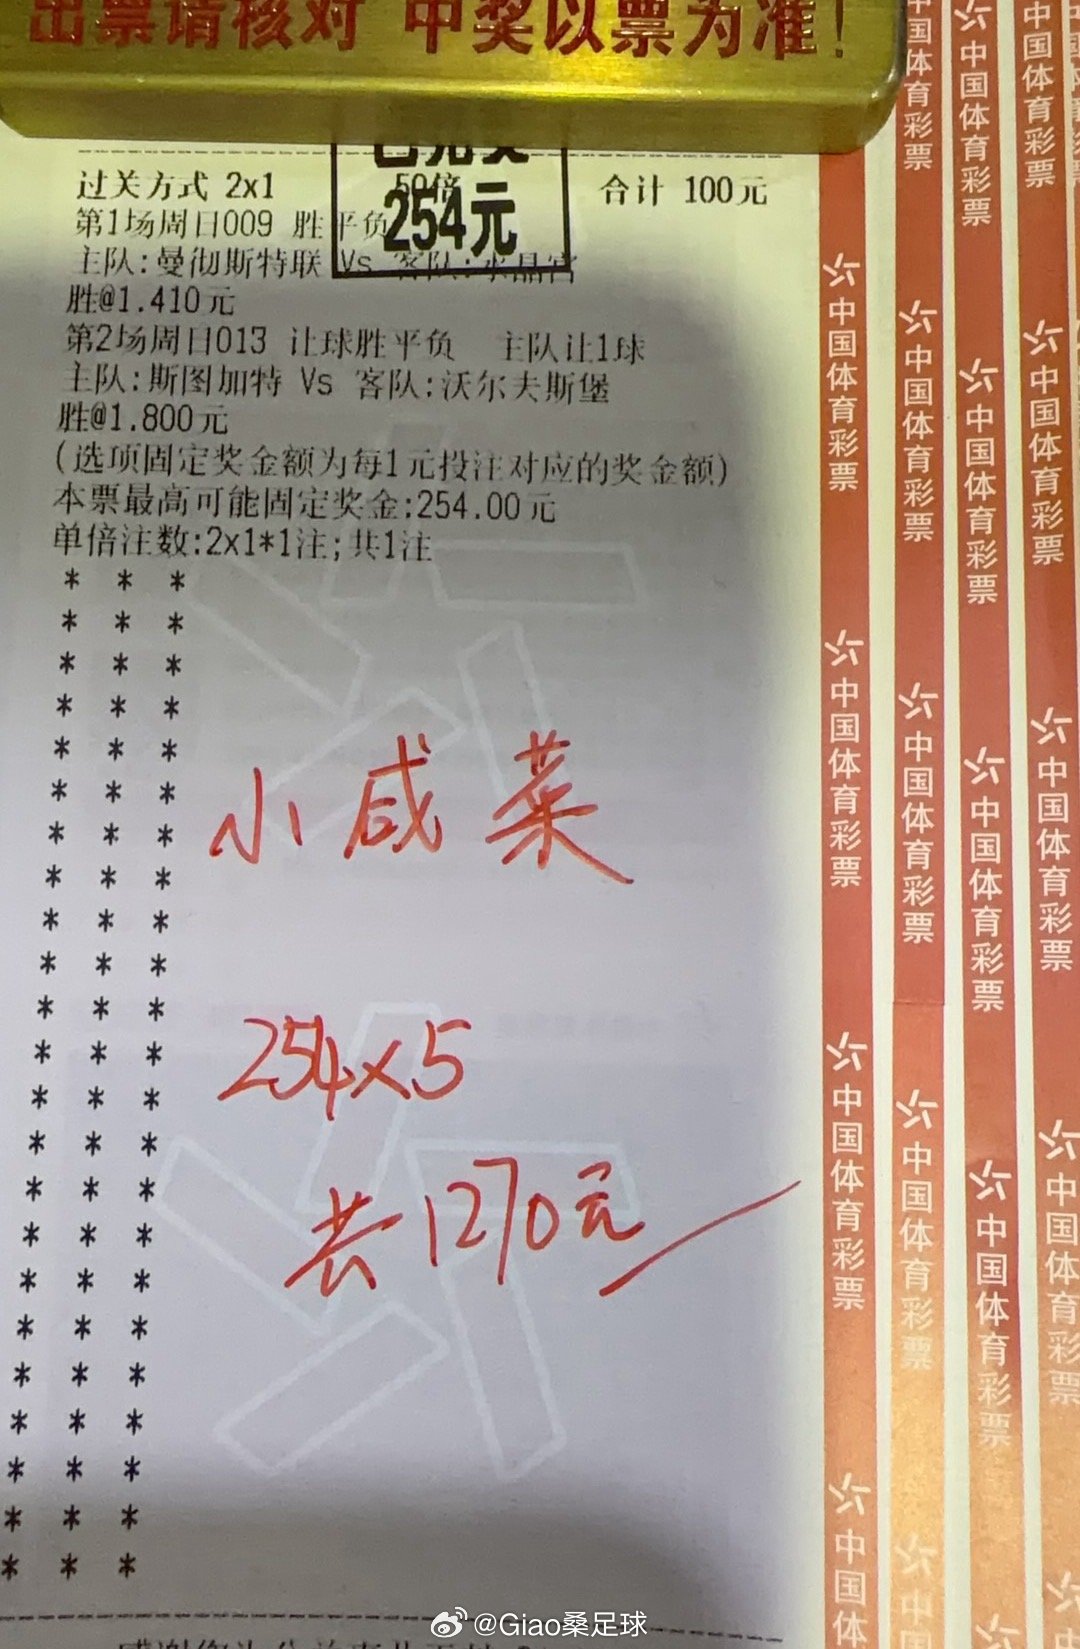 出票请核对 中奖以票为准!
已兑奖
254元
过关方式 2x1 50倍 合计 100元
第1场周日009 胜平负
主队:曼彻斯特联 Vs 客队:水晶宫
胜@1.410元
第2场周日013 让球胜平负 主队让1球
主队:斯图加特 Vs 客队:沃尔夫斯堡
胜@1.800元
(选项固定奖金额为每1元投注对应的奖金额)
本票最高可能固定奖金:254.00元
单倍注数:2x1*1注;共1注
* * *
* * *
* * *
* * *
* * *
* * *
* * *
* * *
* * *
* * *
* * *
* * *
* * *
* * *
* * *
* * *
* * *
* * *
* * *
* * *
* * *
* * *
* * *
小咸菜
254×5
共1270元
中国体育彩票
中国体育彩票
中国体育彩票
中国体
中国体育彩票
中国体育彩票
中国体育彩票
中国体育彩票
中国体育彩票
中国体育彩票
中国体育彩票
中国体育彩票
中国体育彩票
中国体育彩票
中国体育彩票
中国体育彩票
@Giao桑足球